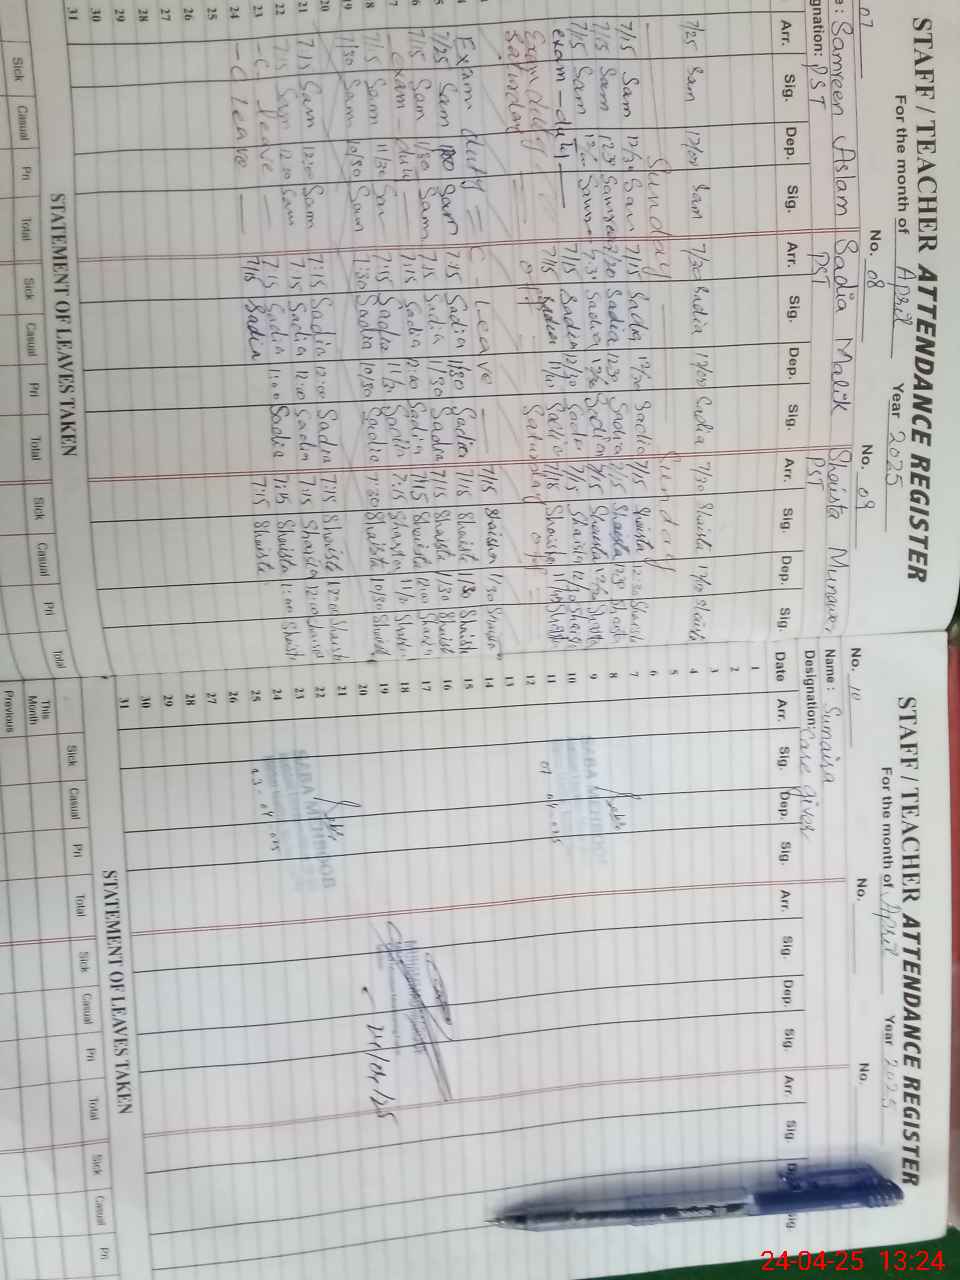 STAFF / TEACHER ATTENDANCE REGISTER
For the month of April Year 2025
07 No. 08 No. 09
Samreen Aslam Sadia Malik Shaista Munawer
gnation: PST PST PST
Arr. Sig. Dep. Sig. Arr. Sig. Dep. Sig. Arr. Sig. Dep. Sig.
7/25 Sam 12/00 Sam 7/30 Sadia 12/00 Sadia 7/30 Shaista 12/00 Shaista
Sunday Sunday
7/15 Sam 12/30 Sam 7/15 Sadia 12/30 Sadia 7/15 Shaista 12:30 Shaista
7/15 Sam 12:30 7/30 Sadia 12:30 Sadia 7/15 Shaista 12:30 Shaista
7/15 Sam Sam 7:30 Sadia Sadia 7/15 Shaista Shaista
exam - duty 7/15 Sadia 12/30 Sadia 7/15 Shaista 12/30 Shaista
7/15 Sadia Sadia 7/15 Shaista Shaista
Exam duty
Saturday off Saturday off
Exam duty = C - Leave - 7/15 Shaista 1/30 Shaista
7/25 Sam 1:00 Sam 7:15 Sadia 1/30 Sadia 7/15 Shaista 1/30 Shaista
7/15 Sam 1/30 Sam 7:15 Sadia 1/30 Sadia 7/15 Shaista 1/30 Shaista
- exam - duty - 7:15 Sadia 12:00 Sadia 7:15 Shaista 12:00 Shaista
7/15 Sam 11/30 Sam 7:15 Sadia 11/30 Sadia 7:15 Shaista Shaista
7/30 Sam 10/30 Sam 7:30 Sadia 10/30 Sadia 7:30 Shaista 10/30 Shaista
20
21 7:15 Sam 12:00 Sam 7:15 Sadia 12:00 Sadia 7:15 Shaista 12:00 Shaista
22 7:15 Sam 12:00 Sam 7:15 Sadia 12:00 Sadia 7:15 Shaista 12:00 Shaista
23 - C - leave 7:15 Sadia 1:00 Sadia 7:15 Shaista 1:00 Shaista
24 - C leave - 7:15 Sadia 7:15 Shaista
25
26
27
28
29
30
31
STATEMENT OF LEAVES TAKEN
Sick Casual Pri Total Sick Casual Pri Total Sick Casual Pri Total
STAFF / TEACHER ATTENDANCE REGISTER
For the month of April Year 2025
No. 10 No. No.
Name: Sumaira
Designation: Care giver
Date Arr. Sig. Dep. Sig. Arr. Sig. Dep. Sig. Arr. Sig. Sig.
1
2
3
4
5
6
7
8
9
10
11
12
13
14
15
16
17
18
19
20
21
22
23
24
25
26
27
28
29
30
31
SABA MEHBOOB
SABA MEHBOOB
24/04/25
STATEMENT OF LEAVES TAKEN
Sick Casual Pri Total Sick Casual Pri Total Sick Casual Pri
This Month
Previous
24-04-25 13:24